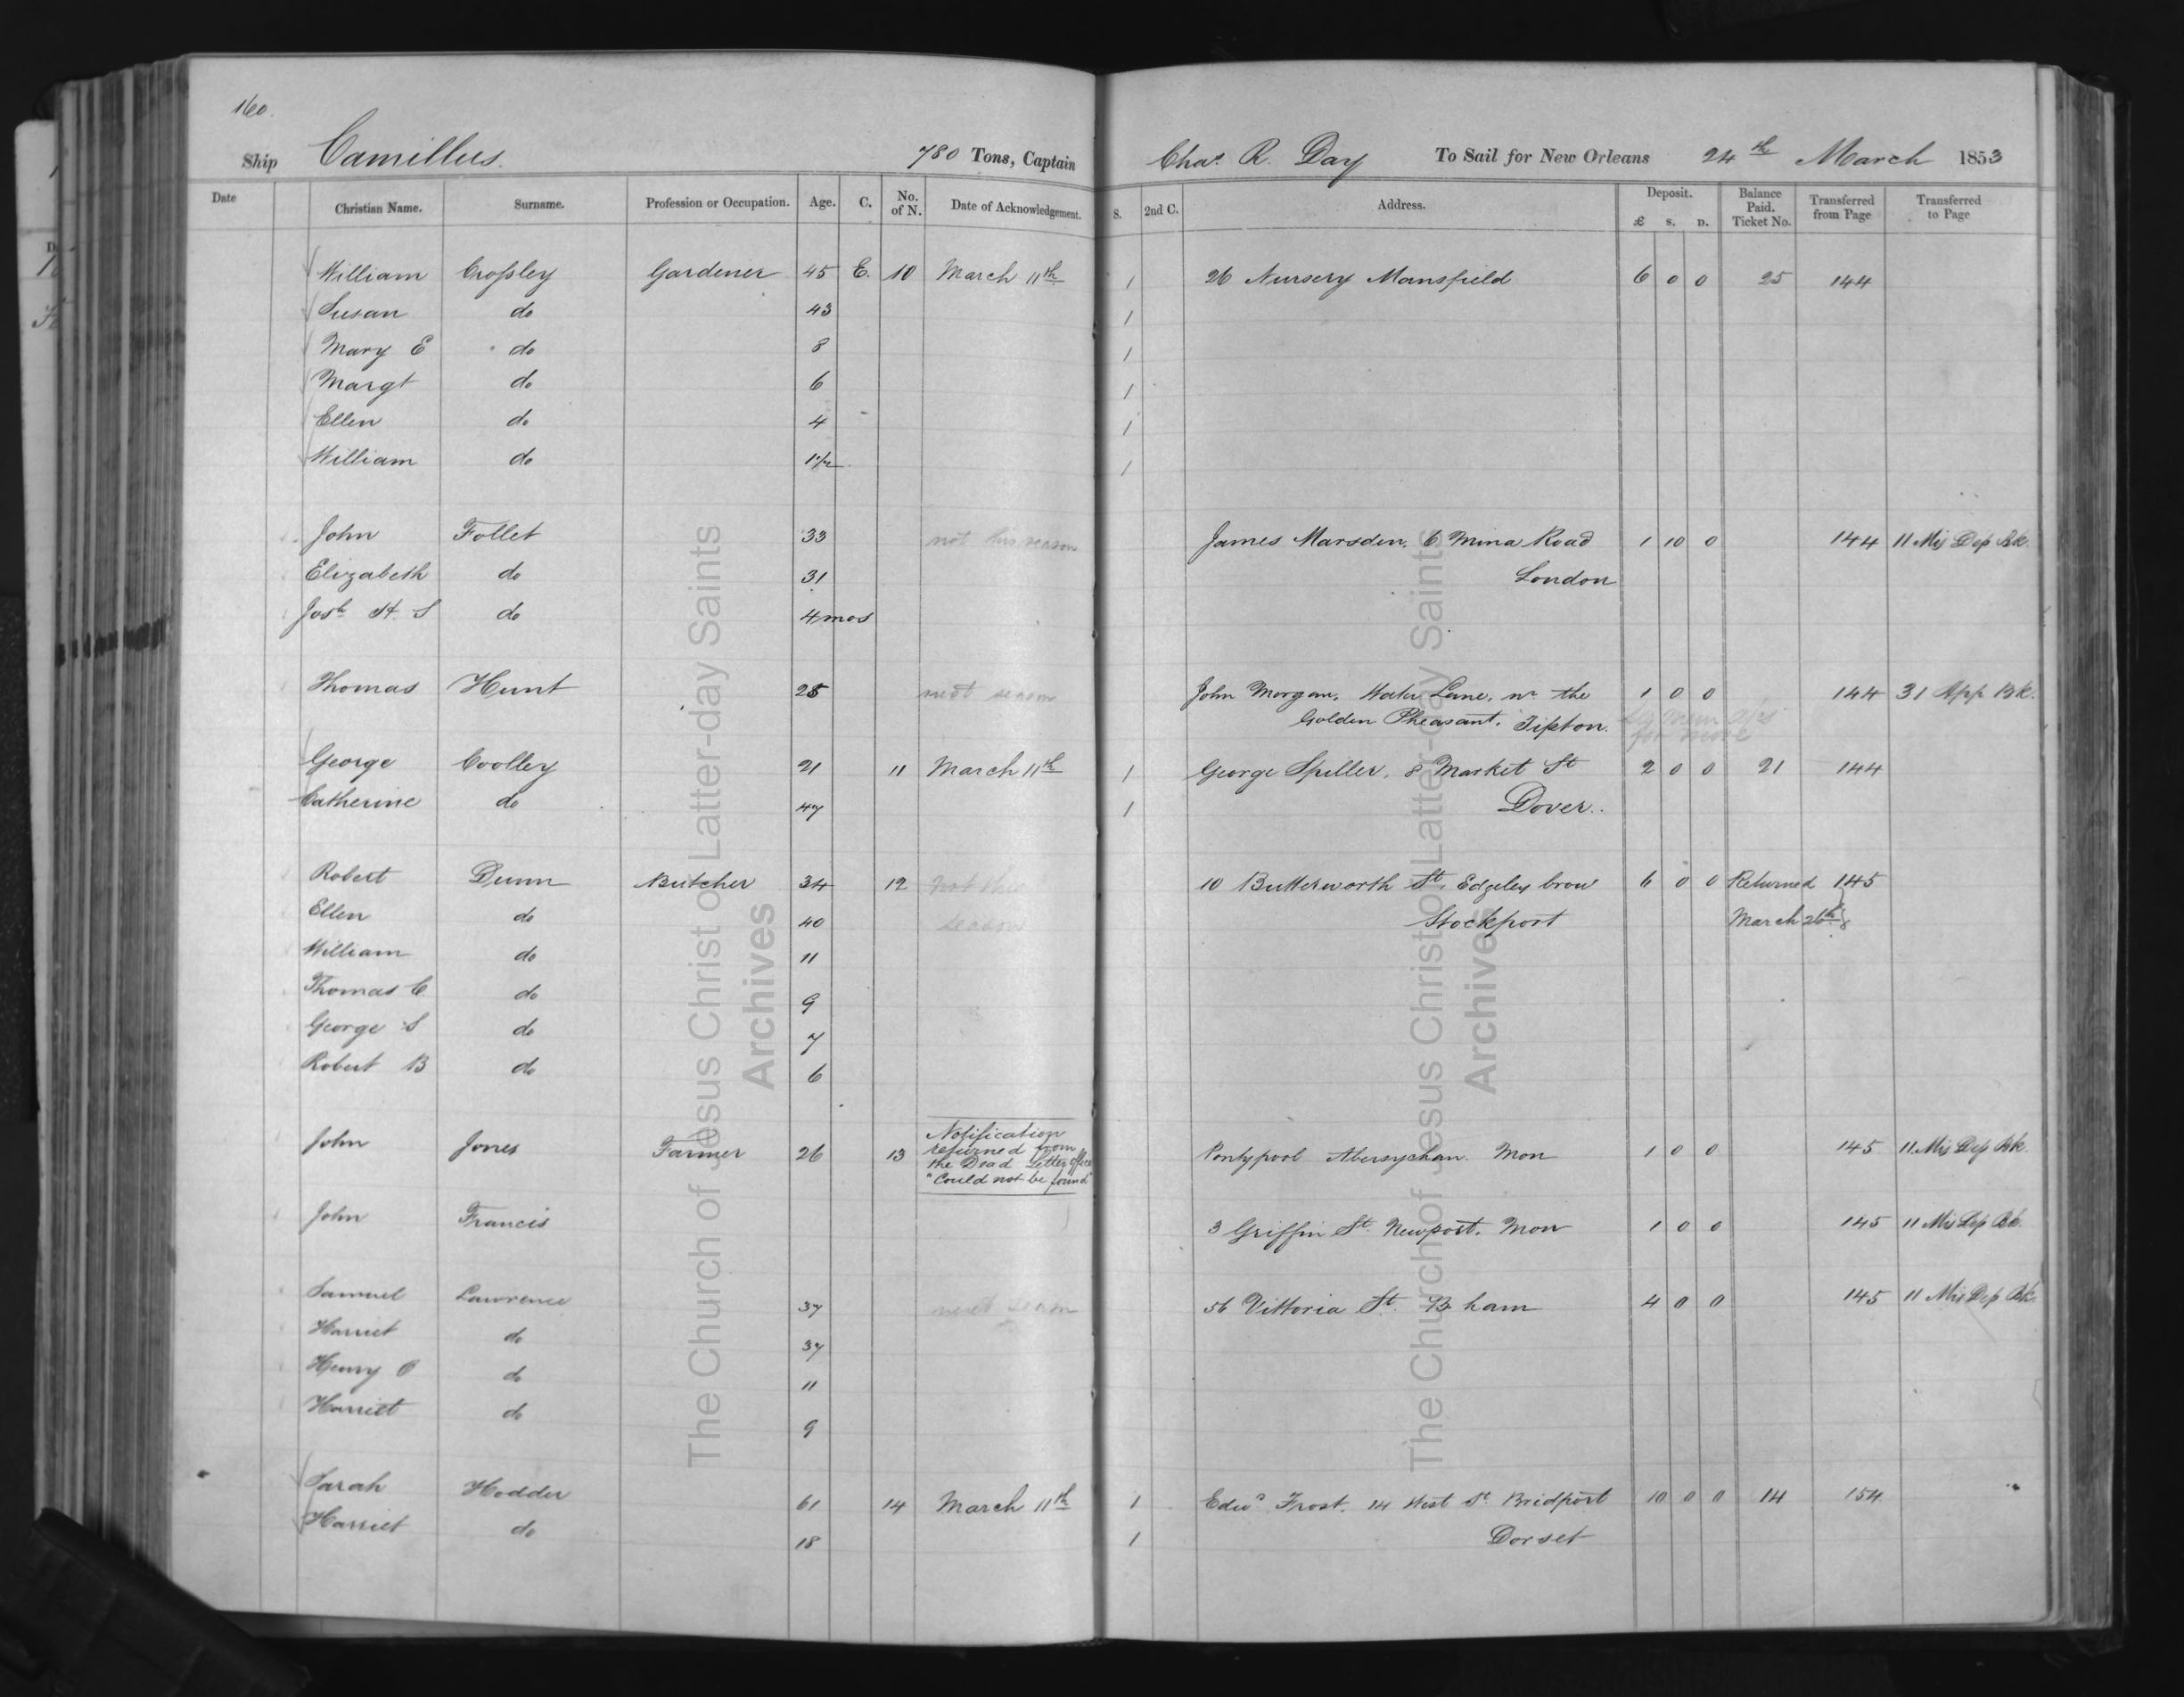 160.
Ship Camillus. 780 Tons, Captain Chas. R. Day To Sail for New Orleans 24th March 1853
Date Christian Name. Surname. Profession or Occupation. Age. C. No. of N. Date of Acknowledgement. S. 2nd C. Address. Deposit. £ S. D. Balance Paid. Ticket No. Transferred from Page Transferred to Page
William Crossley Gardener 45 E. 10 March 11th 1 26 Nursery Mansfield 6 0 0 25 144
Susan do 43 1
Mary E do 8 1
Margt do 6 1
Ellen do 4 1
William do 1½ 1
John Follet 33 not this season James Marsden. 6 Mina Road 1 10 0 144 11 Mis Dep Bk.
Elizabeth do 31 London
Josh H. S do 4 mos
Thomas Hunt 25 next season John Morgan, Water Lane, nr the 1 0 0 144 31 App Bk.
Golden Pheasant, Tipton.
George Coolley 21 11 March 11th 1 George Spiller, 8 Market St 2 0 0 21 144
Catherine do 47 1 Dover.
Robert Dunn Butcher 34 12 not this 10 Butterworth St. Edgeley brow 6 0 0 Returned 145
Ellen do 40 season Stockport March 26th
William do 11
Thomas C do 9
George S do 7
Robert B do 6
John Jones Farmer 26 13 Notification returned from the Dead Letter Office "Could not be found" Pontypool Abersychan. Mon 1 0 0 145 11 Mis Dep Bk.
John Francis 3 Griffin St. Newport. Mon 1 0 0 145 11 Mis Dep Bk.
Samuel Lawrence 37 next season 56 Vittoria St. B.ham 4 0 0 145 11 Mis Dep Bk.
Harriet do 37
Henry do 11
Harriet do 9
Sarah Hodder 61 14 March 11th 1 Edwd Frost. 14 West St. Bridport 10 0 0 14 154
Harriet do 18 1 Dorset
The Church of Jesus Christ of Latter-day Saints
Archives
The Church of Jesus Christ of Latter-day Saints
Archives